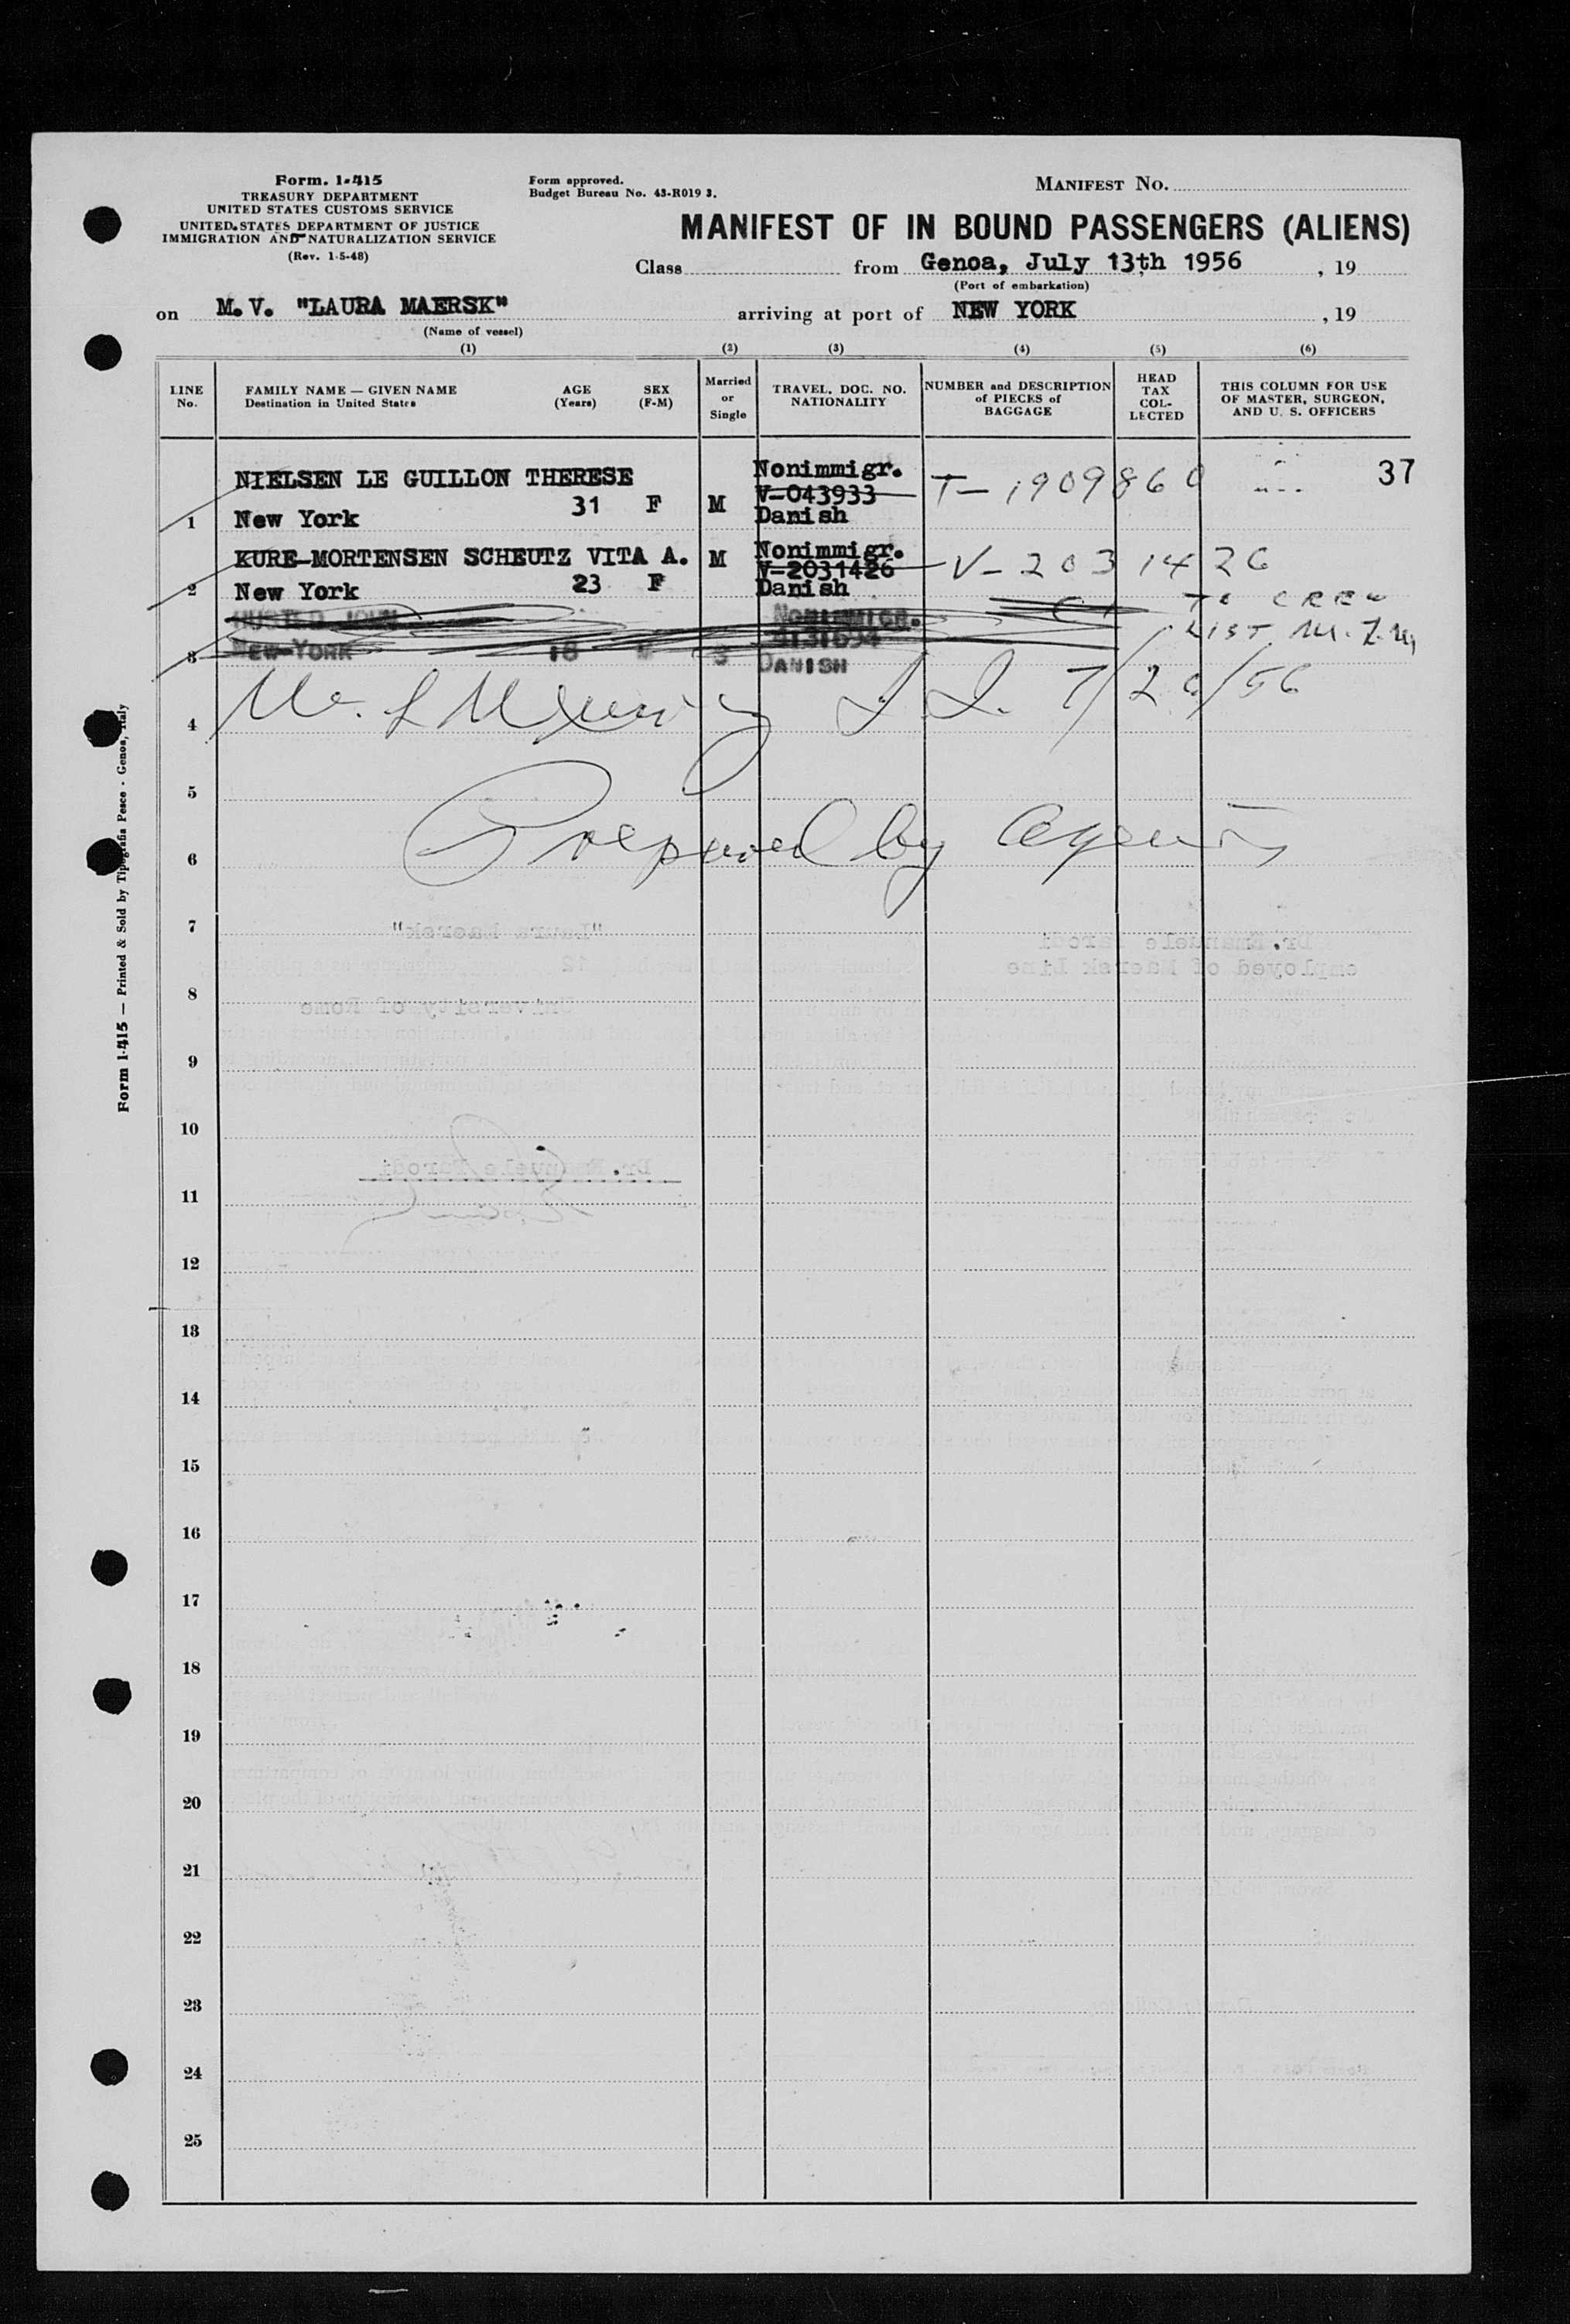 Form. 1-415
TREASURY DEPARTMENT
UNITED STATES CUSTOMS SERVICE
UNITED STATES DEPARTMENT OF JUSTICE
IMMIGRATION AND NATURALIZATION SERVICE
(Rev. 1-5-48)
Form approved.
Budget Bureau No. 43-R019 3.
MANIFEST No.
MANIFEST OF IN BOUND PASSENGERS (ALIENS)
Class from Genoa, July 13th 1956 , 19
(Port of embarkation)
on M.V. "LAURA MAERSK" arriving at port of NEW YORK , 19
(Name of vessel)
(1) (2) (3) (4) (5) (6)
LINE No.
FAMILY NAME — GIVEN NAME
Destination in United States
AGE (Years)
SEX (F-M)
Married or Single
TRAVEL. DOC. NO. NATIONALITY
NUMBER and DESCRIPTION of PIECES of BAGGAGE
HEAD TAX COL- LECTED
THIS COLUMN FOR USE OF MASTER, SURGEON, AND U. S. OFFICERS
NIELSEN LE GUILLON THERESE Nonimmigr. 37
31 F M V-043933 T-1909860
1 New York Danish
KURE-MORTENSEN SCHEUTZ VITA A. M Nonimmigr.
V-2031426 V-2031426
2 New York 23 F Danish
HUSTED JOHN NONIMMIGR. TO CREW
4131694 LIST
3 NEW YORK 18 M S DANISH
4 7/20/56
5
6 Prepared by Agents
7 "Laura Maersk" Dr. Emanuele Parodi
employed of Maersk Line
12
8 University of Rome
9
10
Dr. Emanuele Parodi
11
12
13
14
15
16
17
18
19
20
21
22
23
24
25
Form 1-415 — Printed & Sold by Tipografia Pesce - Genoa, Italy